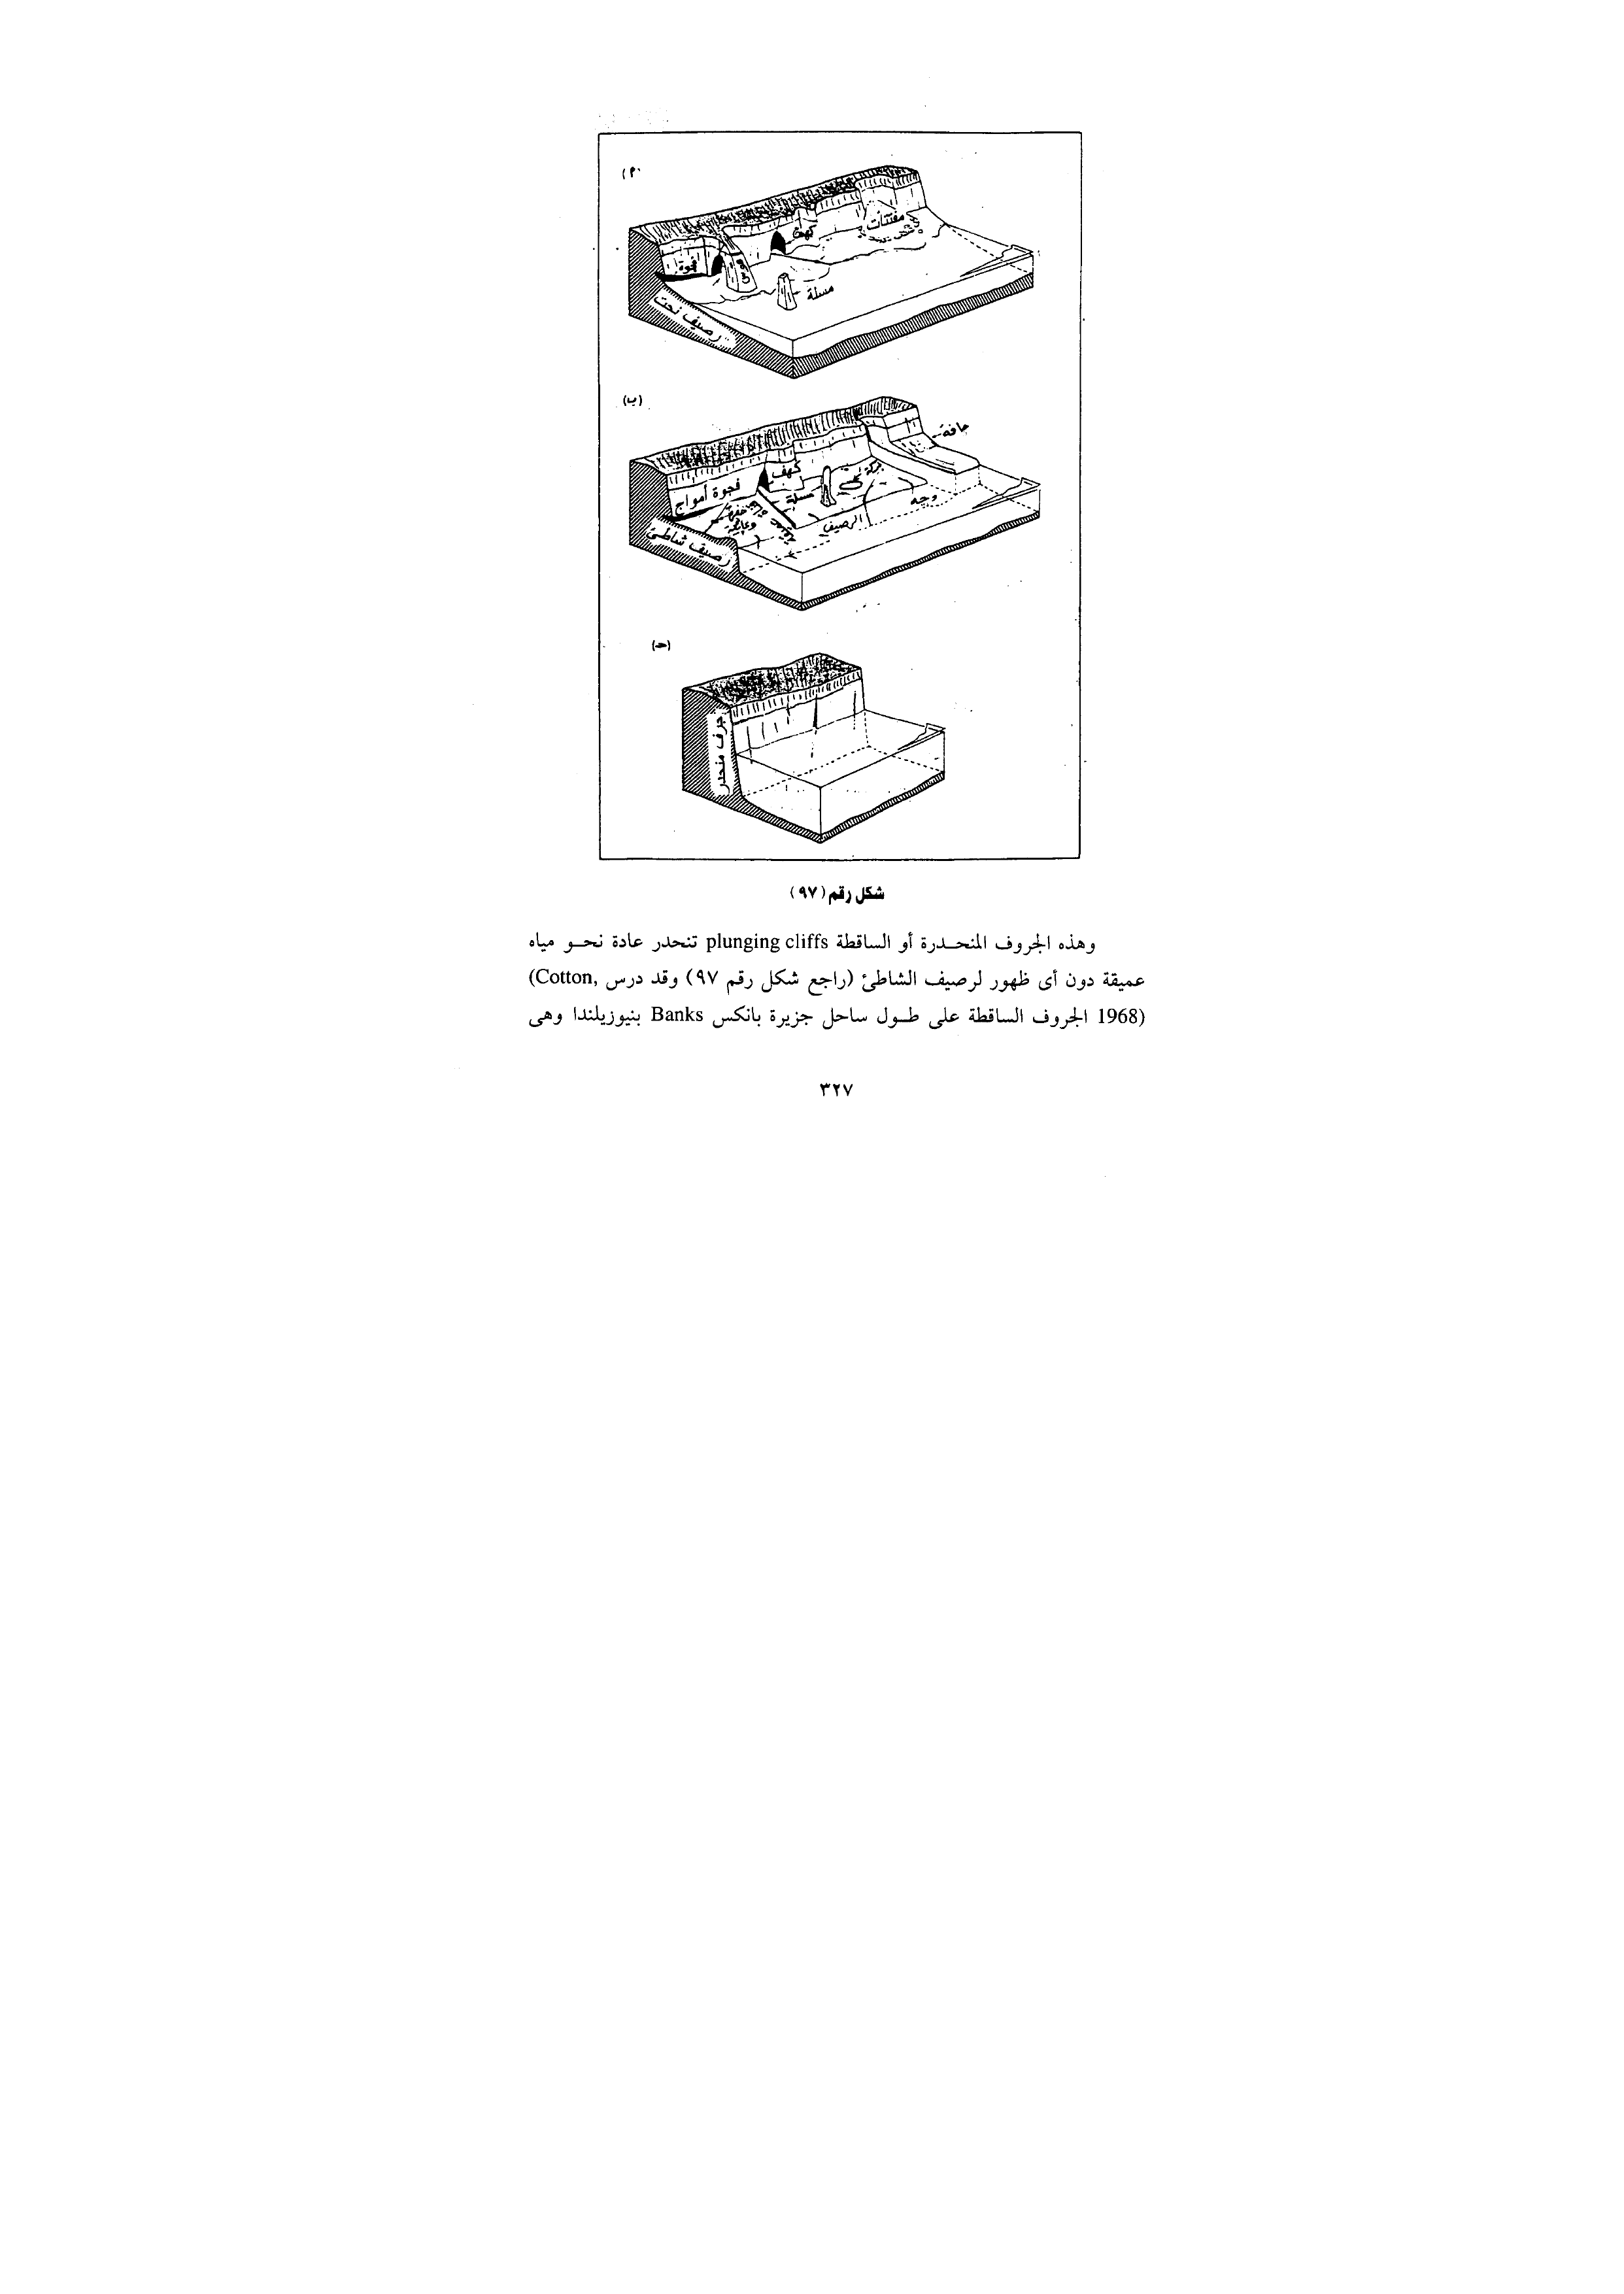 (أ)
كهف
مفتتات
فجوة
قوس
مسلة
رصيف نحت
(ب)
حافة
كهف
بركة
فجوة أمواج
مسلة
وجه
الرصيف
رصيف شاطئ
(حـ)
جرف منحدر
شكل رقم (٩٧)
وهذه الجروف المنحـدرة أو الساقطة plunging cliffs تنحدر عادة نحـو مياه
عميقة دون أى ظهور لرصيف الشاطئ (راجع شكل رقم ٩٧) وقد درس (Cotton,
1968) الجروف الساقطة على طـول ساحل جزيرة بانكس Banks بنيوزيلندا وهى
٣٢٧